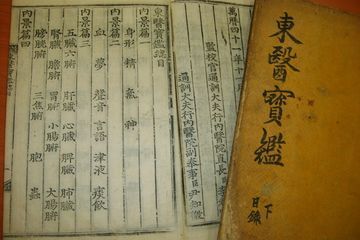 東醫寶鑑
下
目錄
萬曆四十一年十一月
監校官通訓大夫行內醫院直長李
通訓大夫行內醫院副奉事尹知微
東醫寶鑑總目
內景篇一
身形 精 氣 神
內景篇二
血 夢 聲音 言語 津液 痰飮
內景篇三
五臟六腑 肝臟 心臟 脾臟 肺臟
腎臟 膽腑 胃腑 小腸腑 大腸腑
膀胱腑 三焦腑 胞 蟲
內景篇四